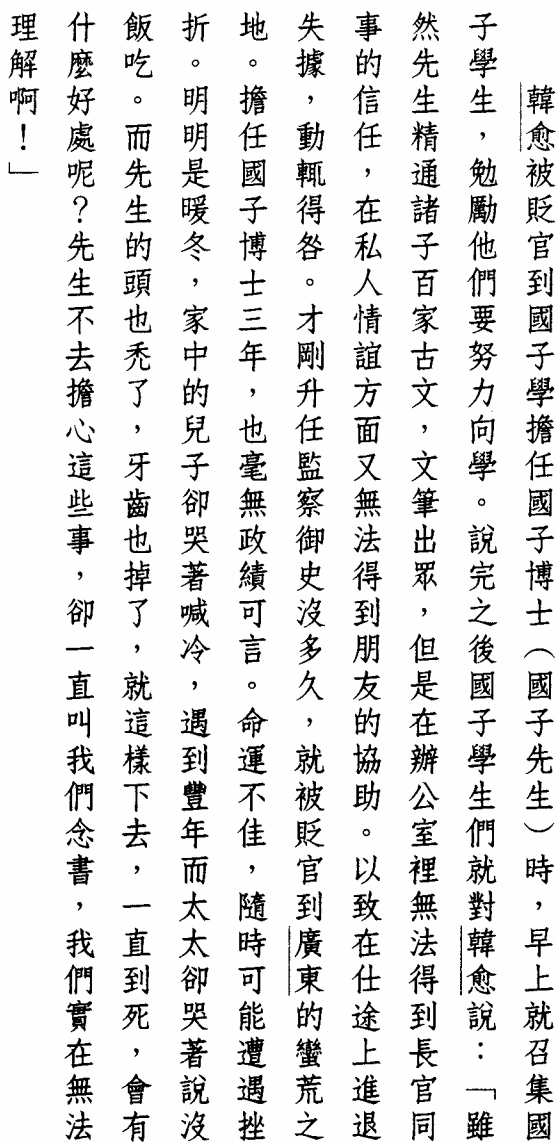 韓愈被貶官到國子學擔任國子博士（國子先生）時，早上就召集國
子學生，勉勵他們要努力向學。說完之後國子學生們就對韓愈說：「雖
然先生精通諸子百家古文，文筆出眾，但是在辦公室裡無法得到長官同
事的信任，在私人情誼方面又無法得到朋友的協助。以致在仕途上進退
失據，動輒得咎。才剛升任監察御史沒多久，就被貶官到廣東的蠻荒之
地。擔任國子博士三年，也毫無政績可言。命運不佳，隨時可能遭遇挫
折。明明是暖冬，家中的兒子卻哭著喊冷，遇到豐年而太太卻哭著說沒
飯吃。而先生的頭也禿了，牙齒也掉了，就這樣下去，一直到死，會有
什麼好處呢？先生不去擔心這些事，卻一直叫我們念書，我們實在無法
理解啊！」